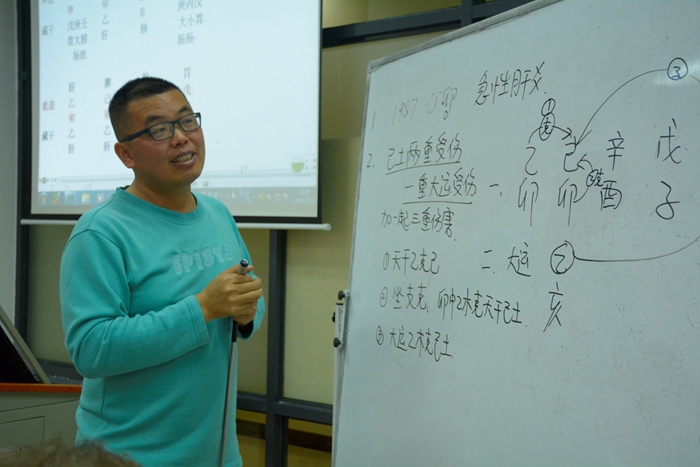 卯
辛
庚丙戊
藏干
戊庚壬
乙
胃大膀
肝
肺
大小胃
肠胱
肠肠
肝
脾
胃
乙
己
戊
乾造
卯
卯
藏干
乙
乙
肝
肝
SPIUTO
1. 1987
急性肝炎
③
2. 己土两重受伤
一重大运受伤
加一起三重伤害
①天干乙克己
②坐支克,卯中乙木克天干己土
③大运乙木克己土
①
一、乙 己 辛 戊
卯 卯 酉 子
二、大运 乙
亥